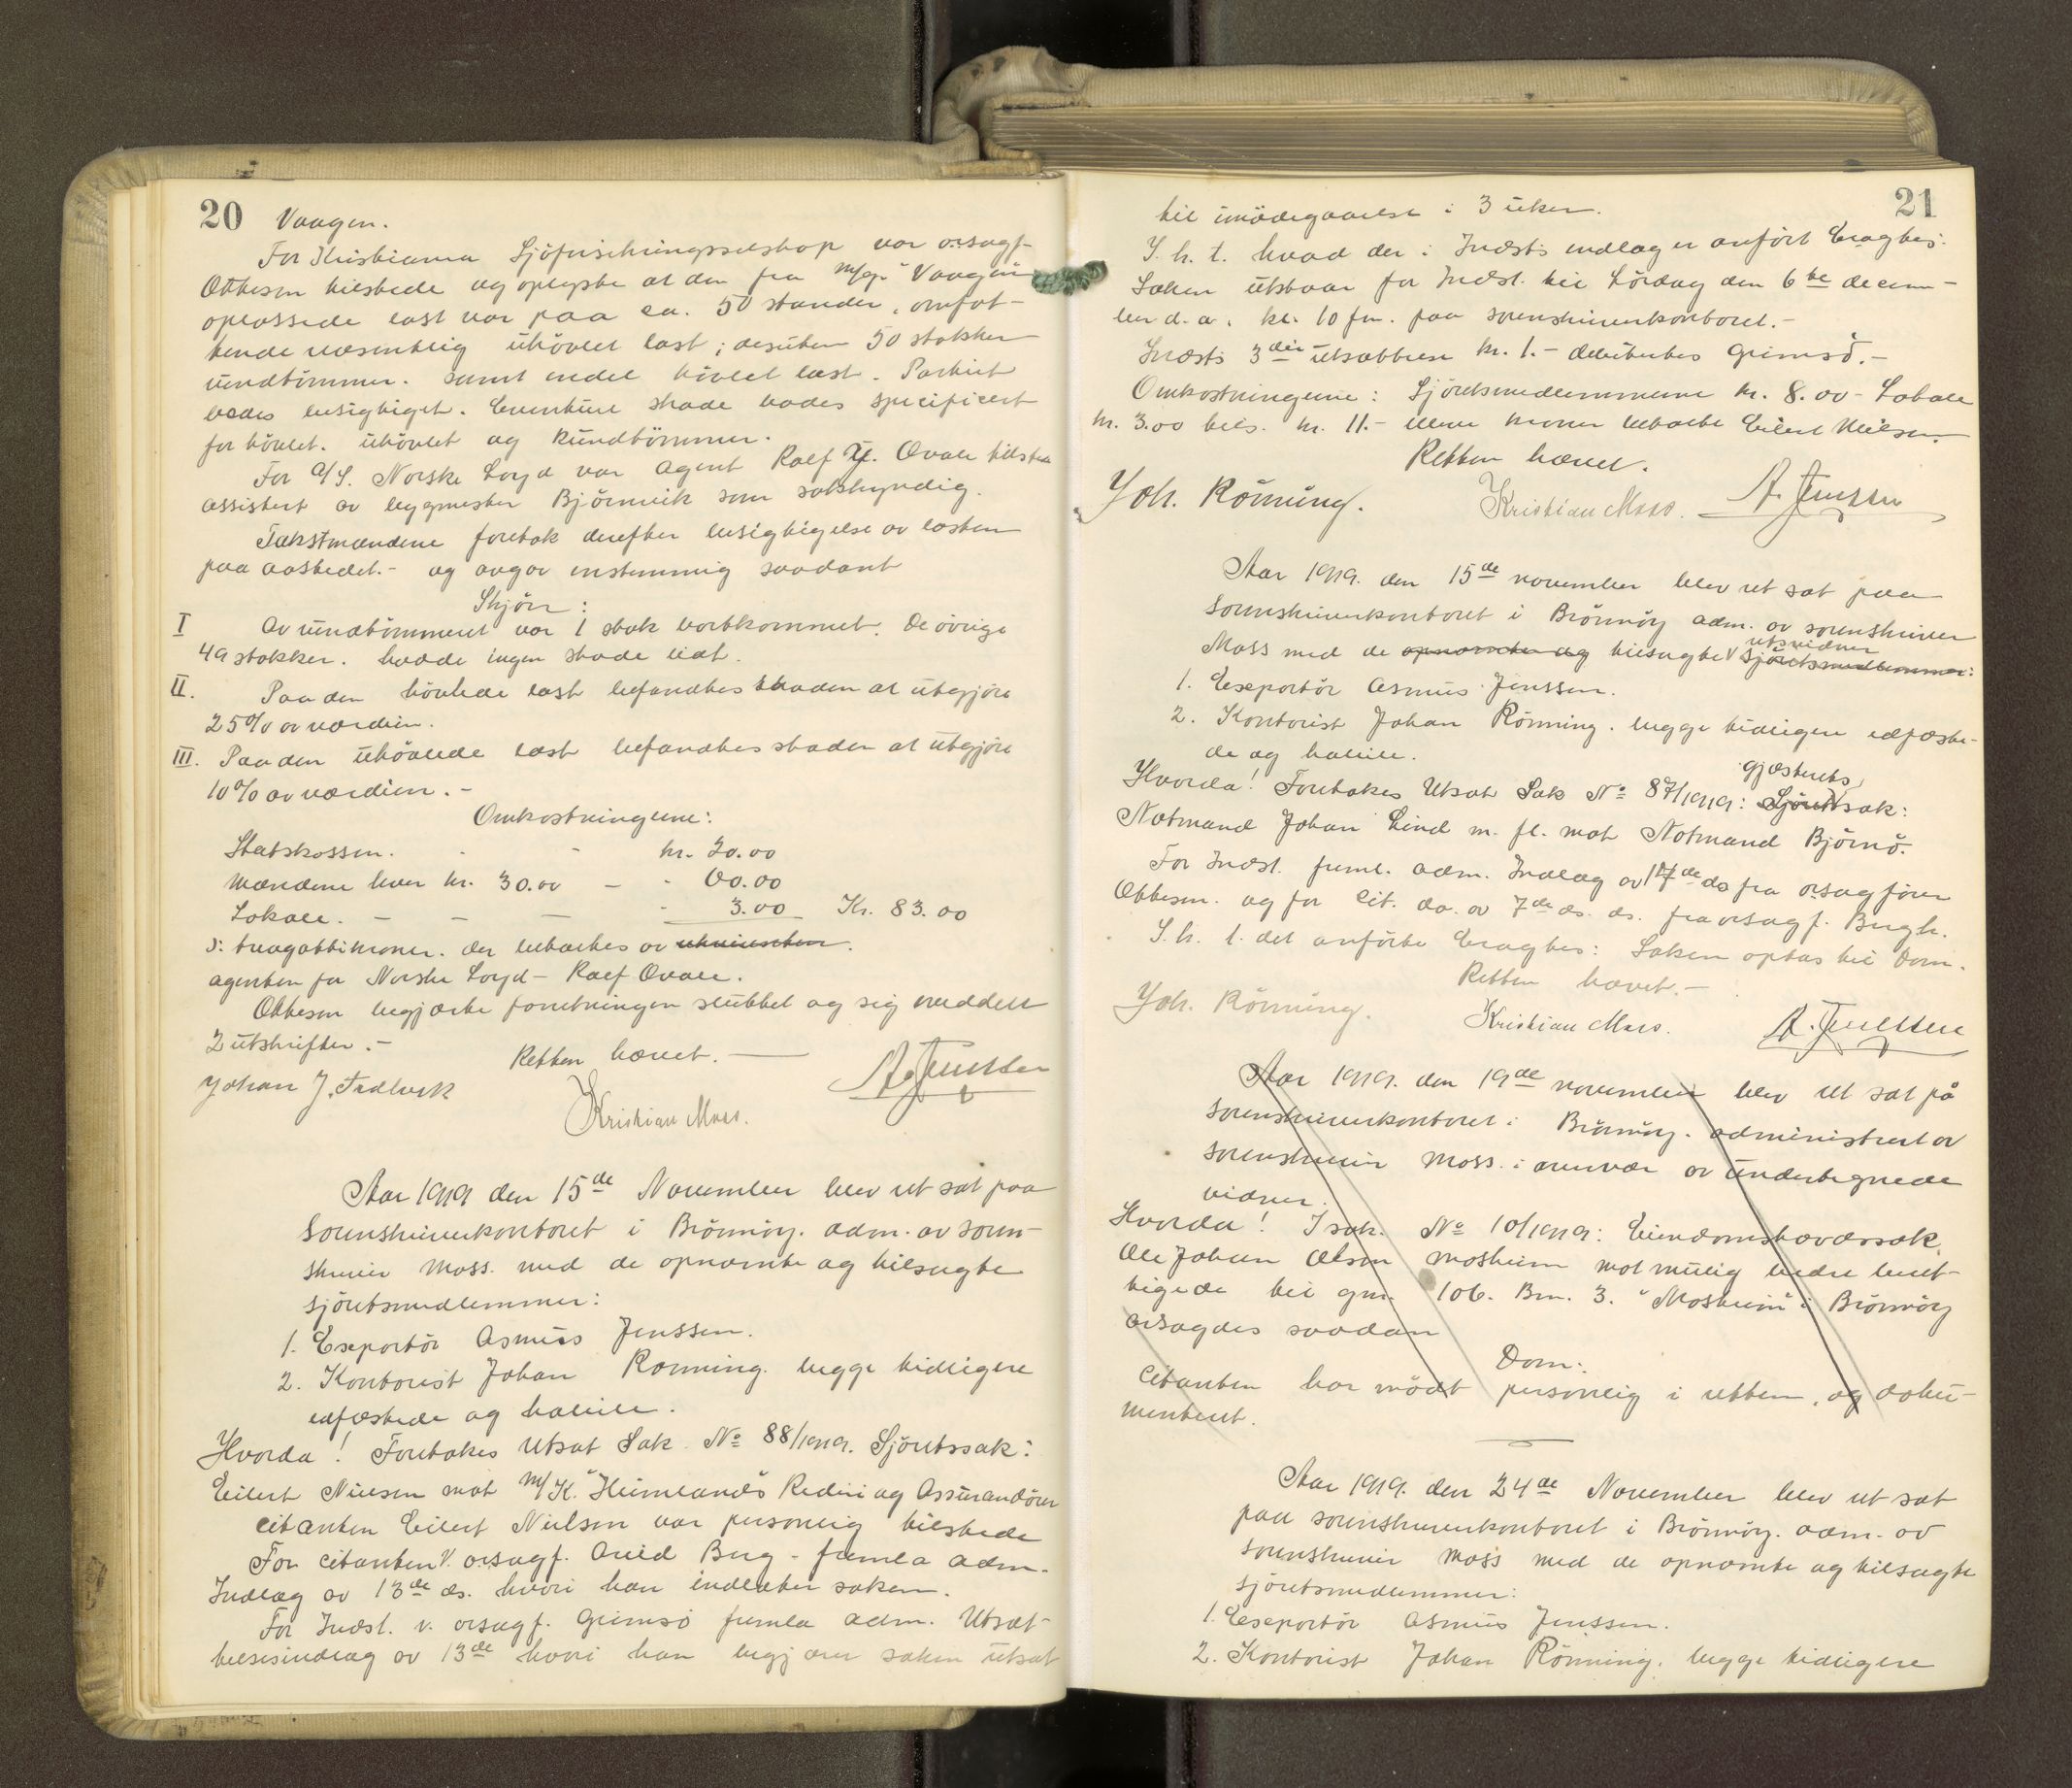 20 Vaagen.
For Kristiania Sjöforsikringsselskap var o.rsagf.
Ottesen tilstede og oplyste at den fra m/gl. "Vaagen"
oplossede last var paa ca. 50 stander, omfat-
tende væsentlig uhövlet last; desuten 50 stokker
rundtömmer. samt endel hövlet last. Partiet
bades besigtiget. Eventuel skade bades specificert
for hövlet. uhövlet og Rundtömmer.
For A/S. Norske Loyd var agent Ralf Qvale tilstede
assistert av bygmester Björnvik som sakkyndig.
Takstmændene foretok derefter besigtigelse av lasten
paa aastedet.- og avgav enstemmig saadant
Skjön:
I Av rundtömmeret var 1 stok bortkommet. De övrige
49 stokker. hadde ingen skade lidt.
II. Paa den hövlede last befandtes skaden at utgjöre
25% av værdien.
III. Paa den uhövlede last befandtes skaden at utgjöre
10% av værdien.-
Omkostningerne:
Statskassen. - - kr. 20.00
Mændene hver kr. 30.00 - - 60.00
Lokale. - - - - 3.00 Kr. 83.00
ɔ: treogottikroner. der betaltes av
agenten for Norske Loyd- Ralf Qvale.
Ottesen begjærte forretningen sluttet og sig meddelt
2 utskrifter.-
Retten hævet.-
Johan J. A. Jenssen
Kristian Moss.
Aar 1919 den 15de November blev ret sat paa
Sorenskriverkontoret i Brönnöy. adm. av soren-
skriver Moss. med de opnævnte og tilsagte
sjöretsmedlemmer:
1. Exportör Asmus Jenssen.
2. Kontorist Johan Rönning. begge tidligere
edfæstede og habile.
Hvorda! Foretakes Utsat Sak No 88/1919. Sjöretssak:
Eilert Nielsen mot M/K. "Heimlands" Rederi og Assurandörer
citanten Eilert Nielsen var personlig tilstede
For citanten v. o.rsagf. Arild Berg - fremla adm.
Indlæg av 13de ds. hvori han indlater saken.
For Indst. v. orsagf. Grimsö fremla adm. Utsæt-
telsesindlæg av 13de hvori han begjærer saken utsat
21
til imödegaaelse i 3 uker.
I. h. t. hvad der i Indst.s indlæg er anfört Eragtes:
Saken utstaar for Indst. til Lördag den 6te decem-
ber d.a. kl. 10 fm. paa sorenskriverkontoret.-
Indst.s 3die utsættelse kr. 1.- debiteres Grimsö.-
Omkostningerne: Sjöretsmedlemmerne kr. 8.00 - Lokale
kr. 3.00 tils. kr. 11.- elleve kroner betalte Eilert Nielsen.
Retten hævet.
Joh. Rönning. Kristian Moss. A. Jenssen
Aar 1919. den 15de november blev ret sat paa
sorenskriverkontoret i Brönnöy adm. av sorenskriver
Moss med de opnævnte og tilsagte retsvidner sjöretsmedlemmer:
1. Exportör Asmus Jenssen.
2. Kontorist Johan Rönning. begge tidligere edfæste-
de og habile.
Hvorda! Foretakes Utsat Sak No 87/1919: gjæsterets Sjöretssak:
Notmand Johan Lind m. fl. mot Notmand Björnö.
For Indst. freml. adm. Indlæg av 14de ds fra o.rsagförer
Ottesen. og for Cit. do. av 7de ds. ds. fra orsagf. Bergh.
I. h. t. det anförte Eragtes: Saken optas til Dom.
Retten hævet.-
Joh. Rönning. Kristian Moss. A. Jenssen
Aar 1919. den 19de november blev ret sat på
sorenskriverkontoret i Brönnöy. administrert av
sorenskriver Moss. i overvær av undertegnede
vidner.
Hvorda! I sak. No 10/1919: Eiendomshævdssak.
Ole Johan Olsen Mosheim mot mulig bedre beret-
tigede til gnr. 106. Bnr. 3. "Mosheim" i Brönnöy
avsagdes saadan
Dom:
Citanten har mödt personlig i retten, og doku-
menteret.
Aar 1919. den 24de November blev ret sat
paa sorenskriverkontoret i Brönnöy. adm. av
sorenskriver Moss med de opnævnte og tilsagte
sjöretsmedlemmer:
1. Exportör Asmus Jenssen.
2. Kontorist Johan Rönning. begge tidligere